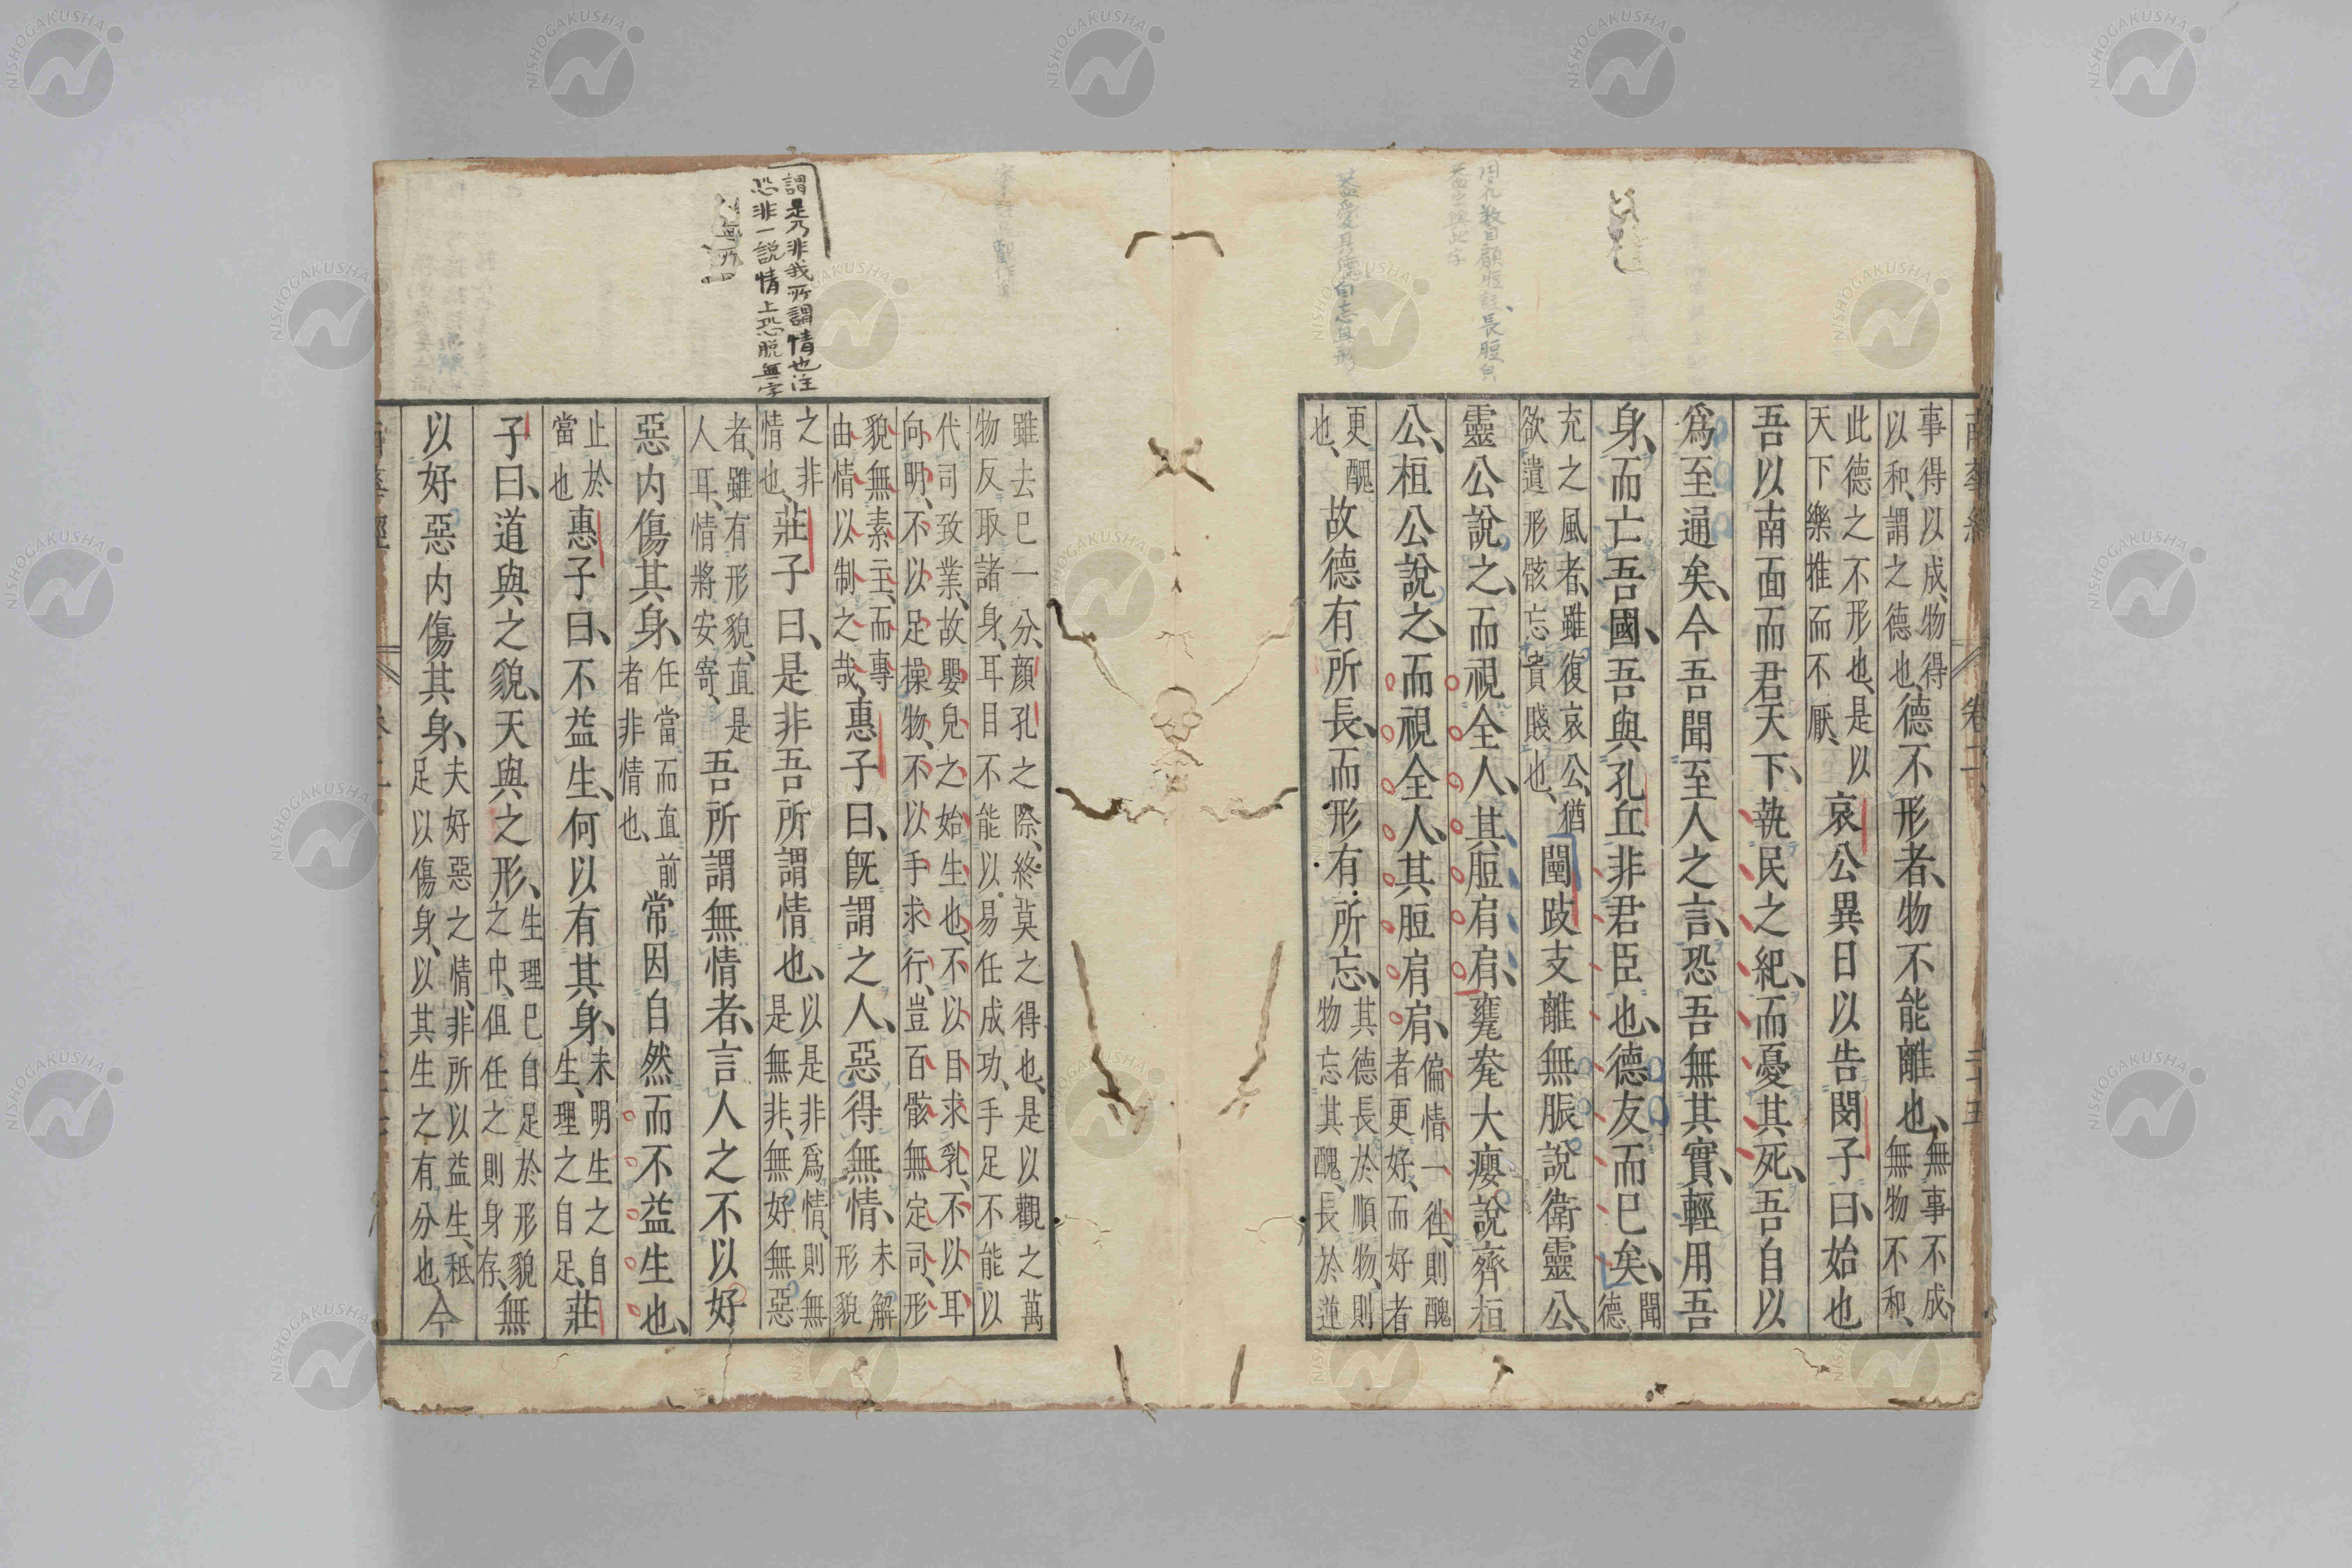 南華經 卷二 二十五
事得以成、物得以和、謂之德也 德不形者、物不能離也、無事不成、無物不和、
此德之不形也、是以天下樂推而不厭、 哀公異日以告閔子曰、始也
吾以南面而君天下、執民之紀、而憂其死、吾自以
爲至通矣、今吾聞至人之言、恐吾無其實、輕用吾
身、而亡吾國、吾與孔丘非君臣也、德友而已矣、聞德
充之風者、雖復哀公、猶欲遺形骸忘貴賤也、 闉跂支離無脤說衛靈公、
靈公說之、而視全人、其脰肩肩、甕㼜大癭說齊桓
公、桓公說之、而視全人、其脰肩肩、偏情一往、則醜者更好、而好者
更醜也、 故德有所長、而形有所忘、其德長於順物、則物忘其醜、長於逆
謂是乃非我所謂情也注
恐非一說情上恐脫無字
雖去已一分、顏孔之際、終莫之得也、是以觀之萬物反取諸身、耳目不能以易任成功、手足不能以
代司致業、故嬰兒之始生也、不以目求乳、不以耳向明、不以足操物、不以手求行、豈百骸無定司、形
貌無素主、而專由情以制之哉、 惠子曰、旣謂之人、惡得無情、未解形貌
之非情也、 莊子曰、是非吾所謂情也、以是非爲情、則無是無非、無好無惡
者、雖有形貌、直是人耳、情將安寄、 吾所謂無情者、言人之不以好
惡內傷其身、任當而直前者非情也、 常因自然而不益生也、
止於當也 惠子曰、不益生、何以有其身、未明生之自生、理之自足、 莊
子曰、道與之貌、天與之形、生理已自足於形貌之中、但任之則身存、 無
以好惡內傷其身、夫好惡之情、非所以益生、秪足以傷身、以其生之有分也 今
NISHOGAKUSHA